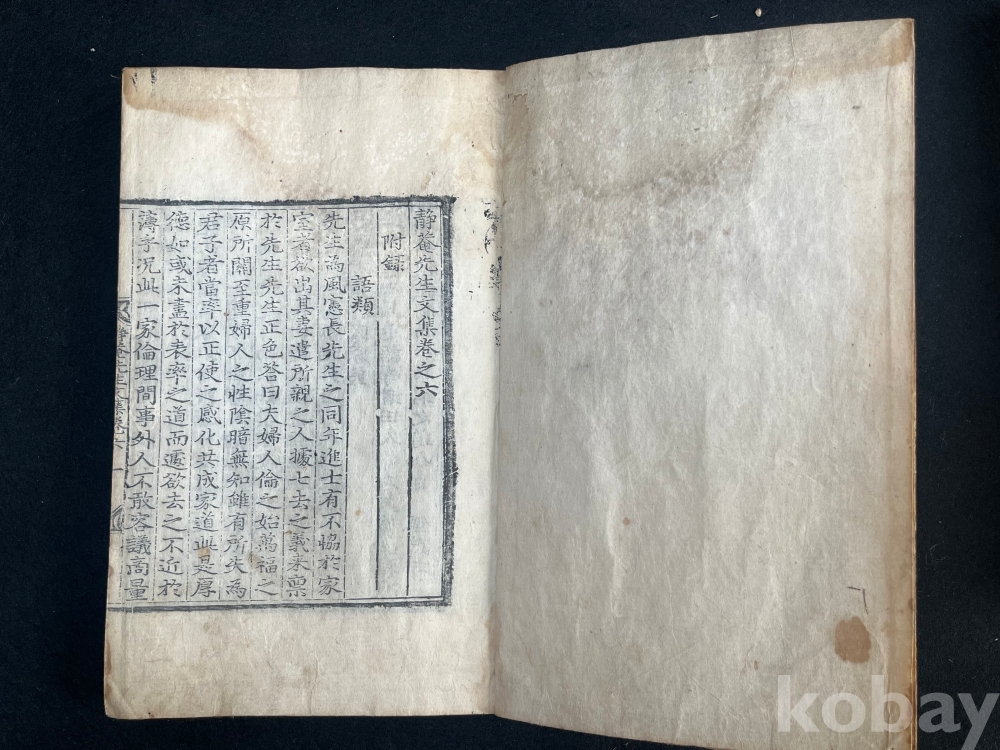 靜菴先生文集卷之六
附録
語類
先生為風憲長先生之同年進士有不恊於家
室者欲出其妻遣所親之人據七去之義来禀
於先生先生正色荅曰夫婦人倫之始萬福之
原所關至重婦人之性陰暗無知雖有所失為
君子者當率以正使之感化共成家道此是厚
德如或未盡於表率之道而遽欲去之不近於
薄乎况此一家倫理間事外人不敢容議商量
靜菴先生文集卷六
一
kobay